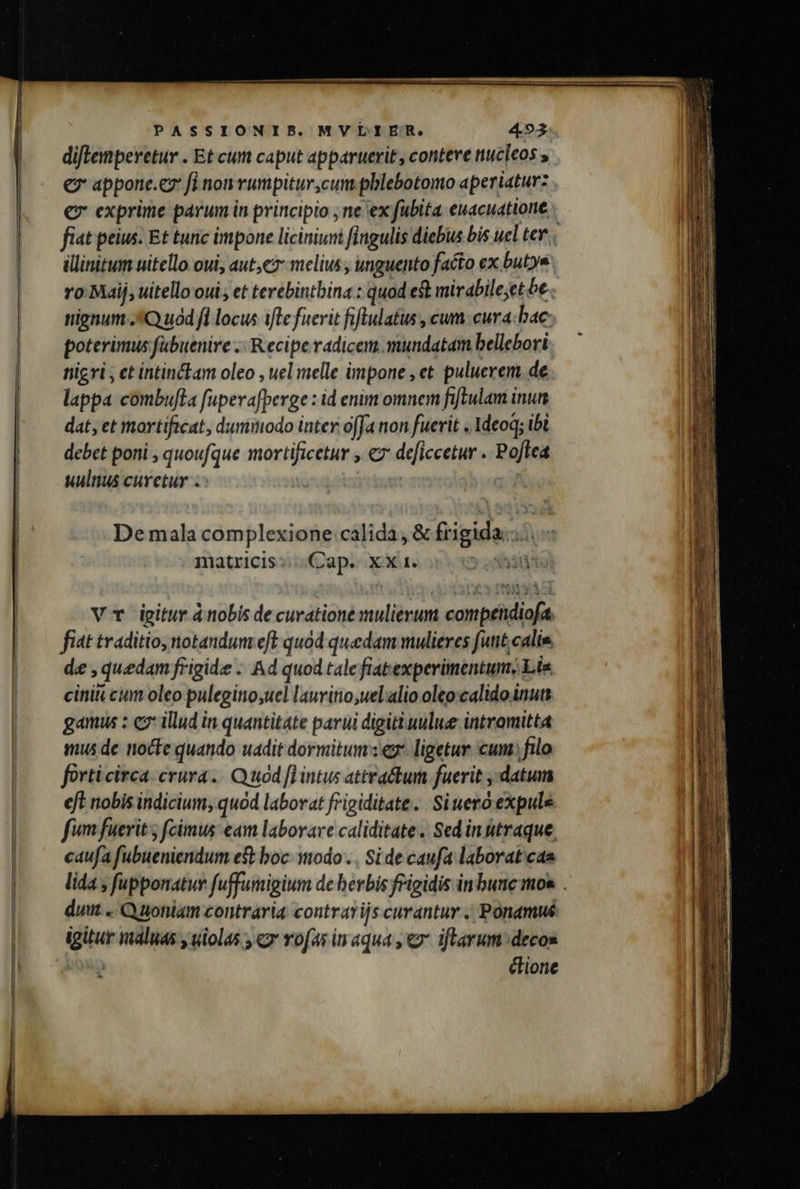 PASSIONIB. MVLIER. 493
diſtemperetur . Et cum caput apparuerit, contere nucleos,
& appone.& ſi non rumpitur,cum phlebotomo aperiatur:
& exprime parum in principio, ne ex ſubita euacuatione
fiat peius. Et tunc impone licinium ſingulis diebus bis uel ter
illinitum uitello oui, aut,& melius, unguento facto ex buty=
ro Maij, uitello oui, et terebinthina : quod est mirabile,et be
nignum. Quòd ſi locus iſte fuerit fiſtulatus, cum cura hac
poterimus ſubuenire. Recipe radicem mundatam hellebori
nigri, et intinctam oleo, uel melle impone, et puluerem de
lappa combuſta ſuperaſperge : id enim omnem fiſtulam inun
dat, et mortificat, dummodo inter oſſa non fuerit . Ideoq; ibi
debet poni, quouſque mortificetur, & deſiccetur . Poſtea
uulnus curetur .
De mala complexione calida, & frigida
matricis. Cap. XXI.
VT igitur à nobis de curatione mulierum compendioſa
fiat traditio, notandum eſt quòd quædam mulieres ſunt calie
dæ, quædam frigidæ . Ad quod tale fiat experimentum. Li=
ciniũ cum oleo pulegino,uel laurino,uel alio oleo calido inun
gamus : & illud in quantitate parui digiti uuluæ intromitta
mus de nocte quando uadit dormitum : & ligetur cum filo
forti circa crura. Quòd ſi intus attractum fuerit, datum
eſt nobis indicium, quòd laborat frigiditate. Si uerò expul=
ſum fuerit, ſcimus eam laborare caliditate. Sed in utraque
cauſa ſubueniendum est hoc modo. Si de cauſa laborat ca=
lida, ſupponatur ſuffumigium de herbis frigidis in hunc mo= .
dum . Quoniam contraria contrarijs curantur . Ponamus
igitur maluas, uiolas, & roſas in aqua, & iſtarum deco=
ctione